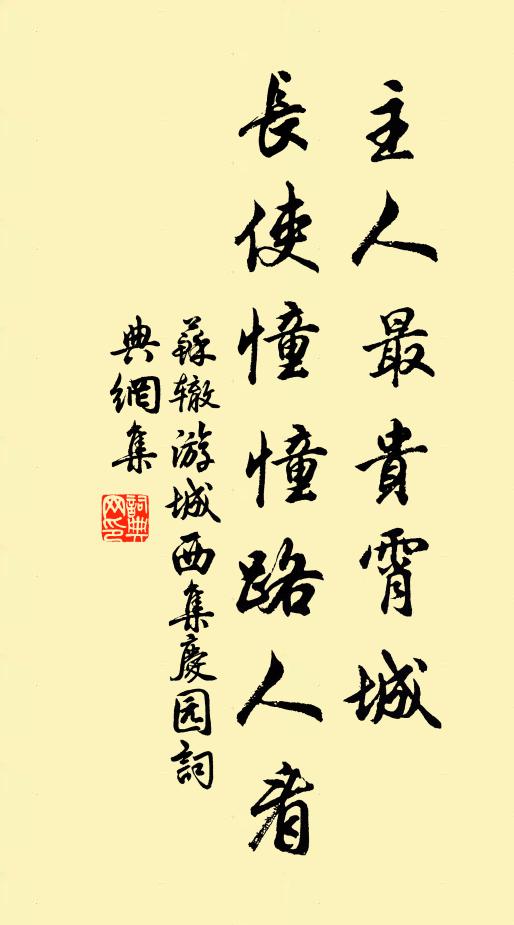 主人最貴霄城
長使憧憧路人看
蘇辙游城西集慶园詞
典網集
詞典
网印